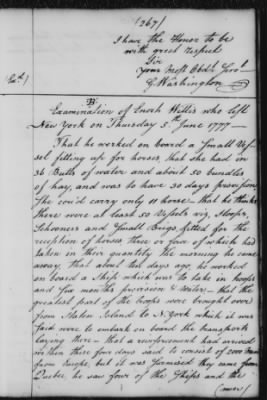 (267)
I have the Honor to be
with great respect
Sir
Your Most Obdt. Servt.
G. Washington
B
Examination of Enoch Willis who left
New York on Thursday 5th June 1777—
That he worked on board a Small Ves-
sel fitting up for horses, that she had in
36 Butts of water and about 50 bundles
of hay, and was to have 30 days provision
She could carry only 11 horse— that he thinks
there were at least 50 Vessels viz. Sloops,
Schooners and Small Brigs, fitted for the
reception of horses, three or four of which had
taken in their quantity the morning he came
away; That about ten days ago, he worked
on board a Ship which was to take in troops
and Live
provision & water— that the
greatest part of the troops were brought over
from Staten Island to N. York which it was
said were to embark on board the transports
laying there— that a reinforcement had arrived
within these four days said to consist of 2000 men
from Europe, but it was surmised they came from
Quebec, he saw four of the Ships and the